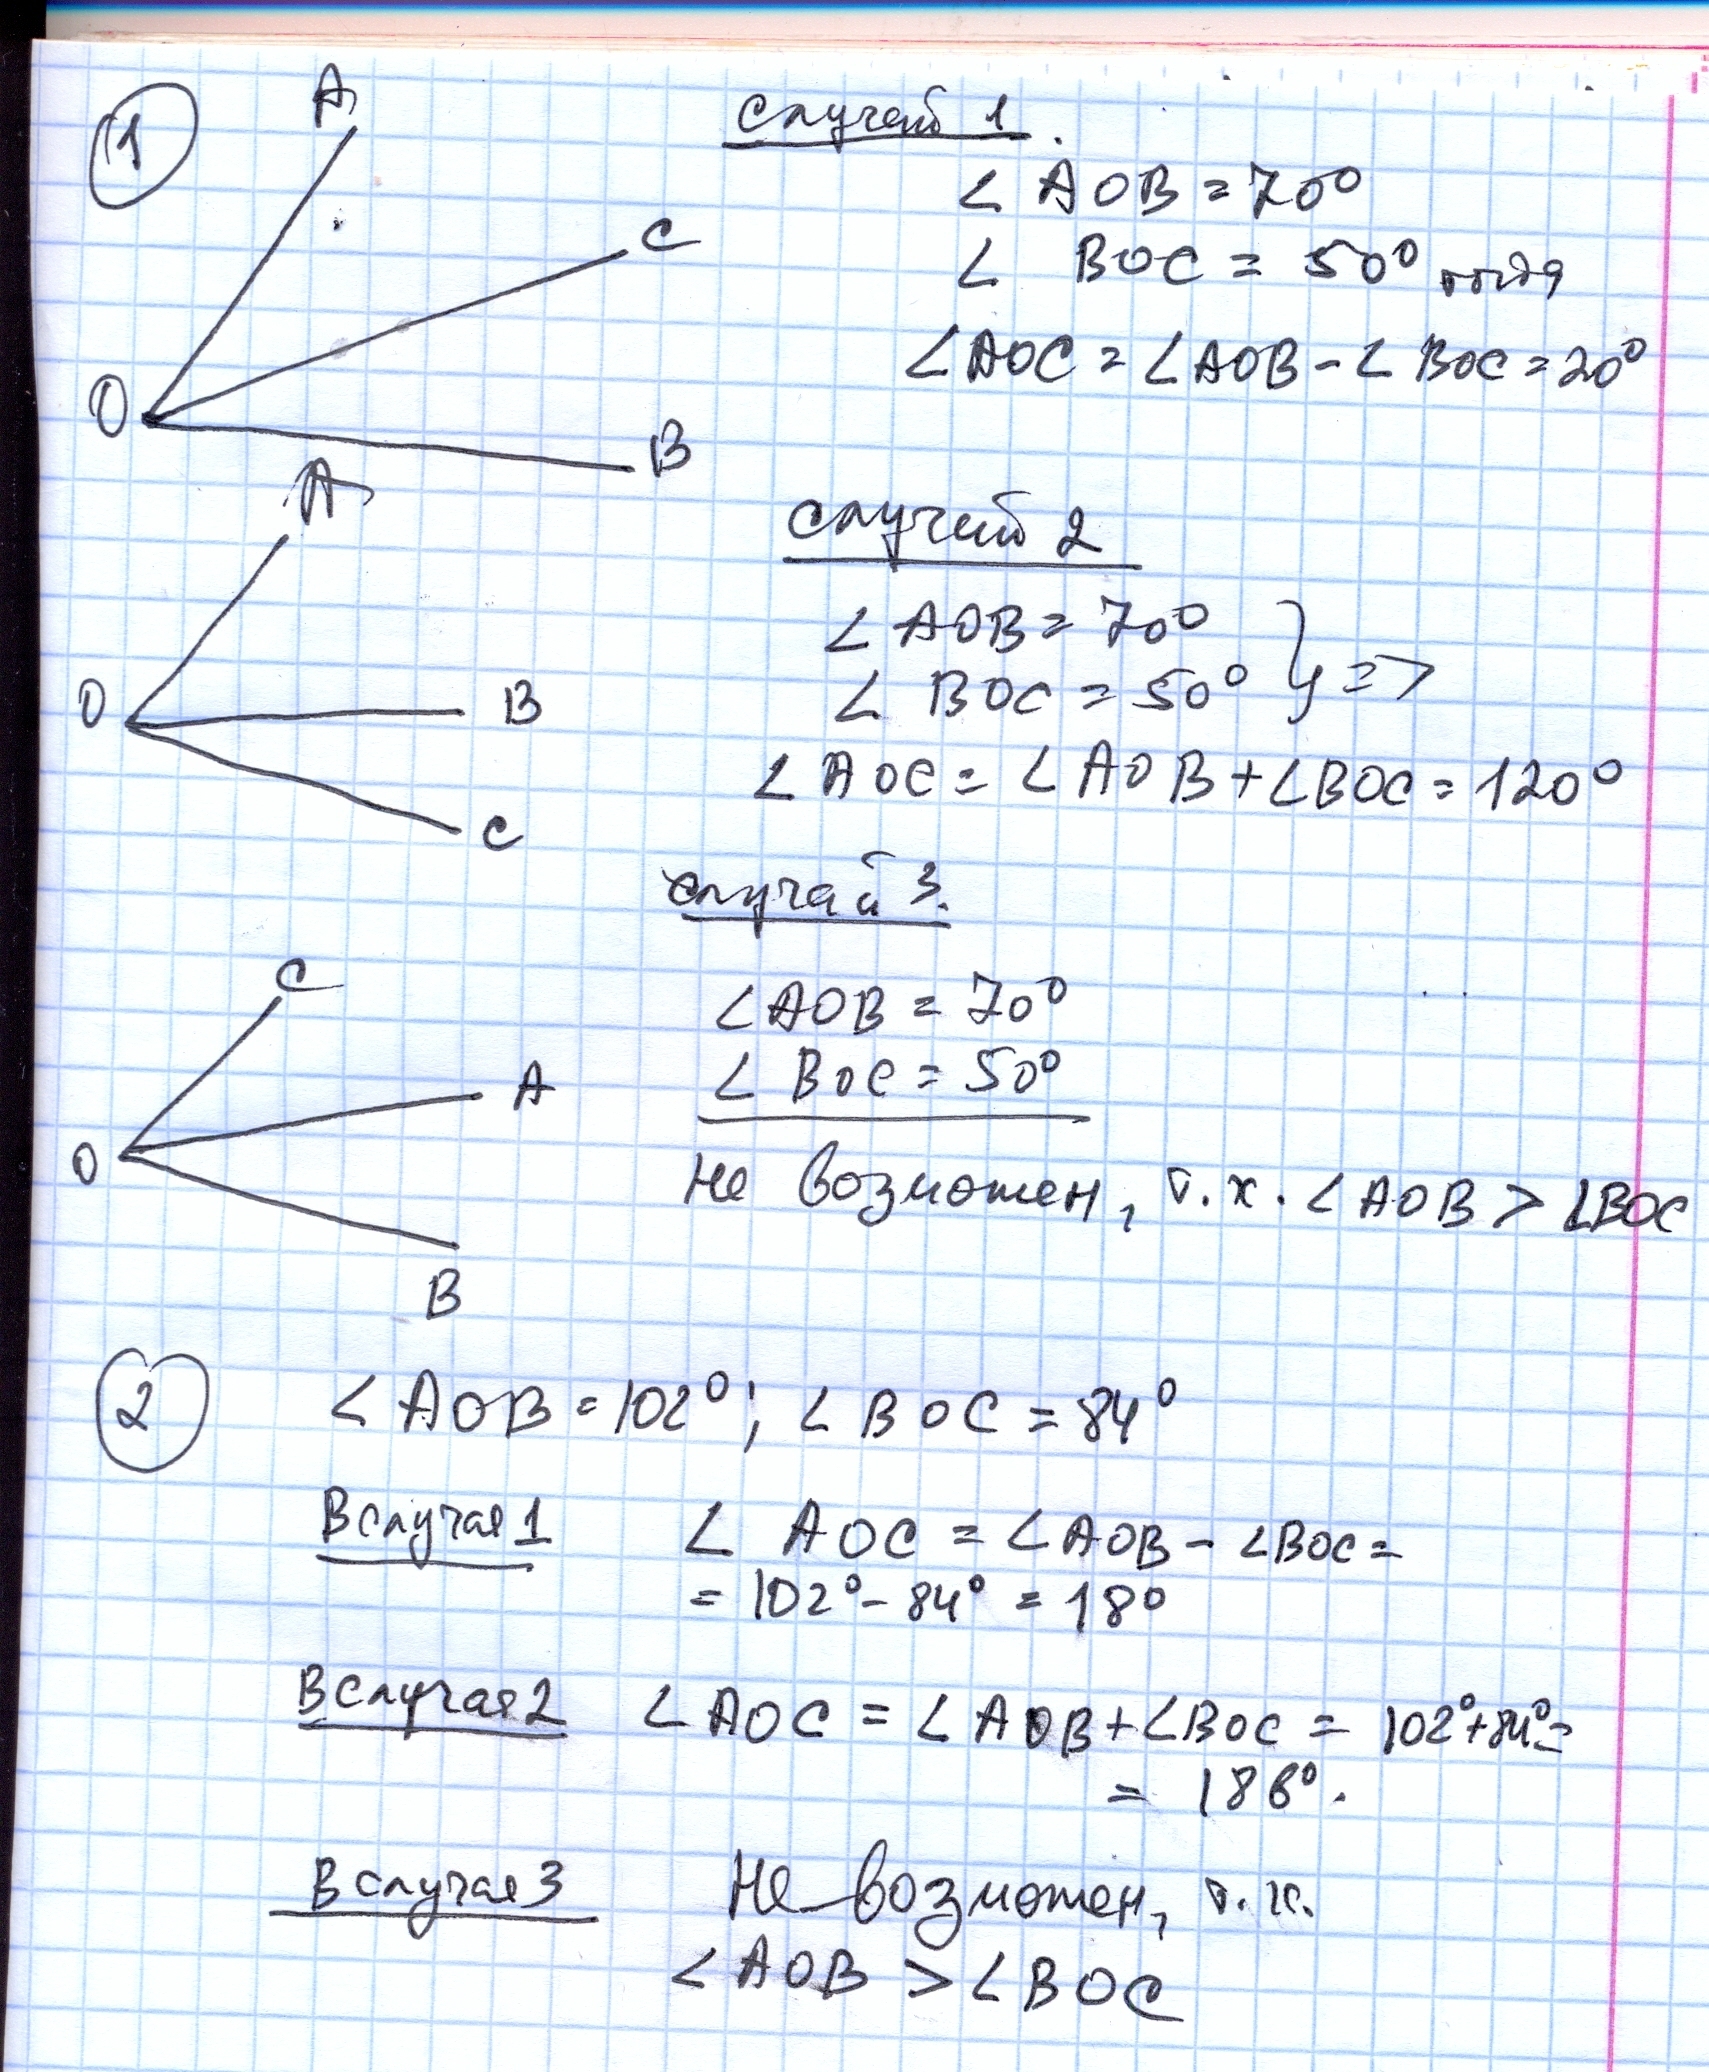 1
A
C
O
B
Случай 1.
∠ AOB = 70°
∠ BOC = 50° тогда
∠AOC = ∠AOB - ∠BOC = 20°
A
O
B
C
Случай 2
∠ AOB = 70°
∠ BOC = 50° } =>
∠ AOC = ∠AOB + ∠BOC = 120°
C
A
O
B
Случай 3.
∠AOB = 70°
∠ BOC = 50°
Не возможен, т.к. ∠AOB > ∠BOC
2
∠ AOB = 102°; ∠ BOC = 84°
В случае 1
∠ AOC = ∠AOB - ∠BOC =
= 102° - 84° = 18°
В случае 2
∠ AOC = ∠AOB + ∠BOC = 102° + 84° =
= 186°.
В случае 3
Не возможен, т.к.
∠AOB > ∠BOC